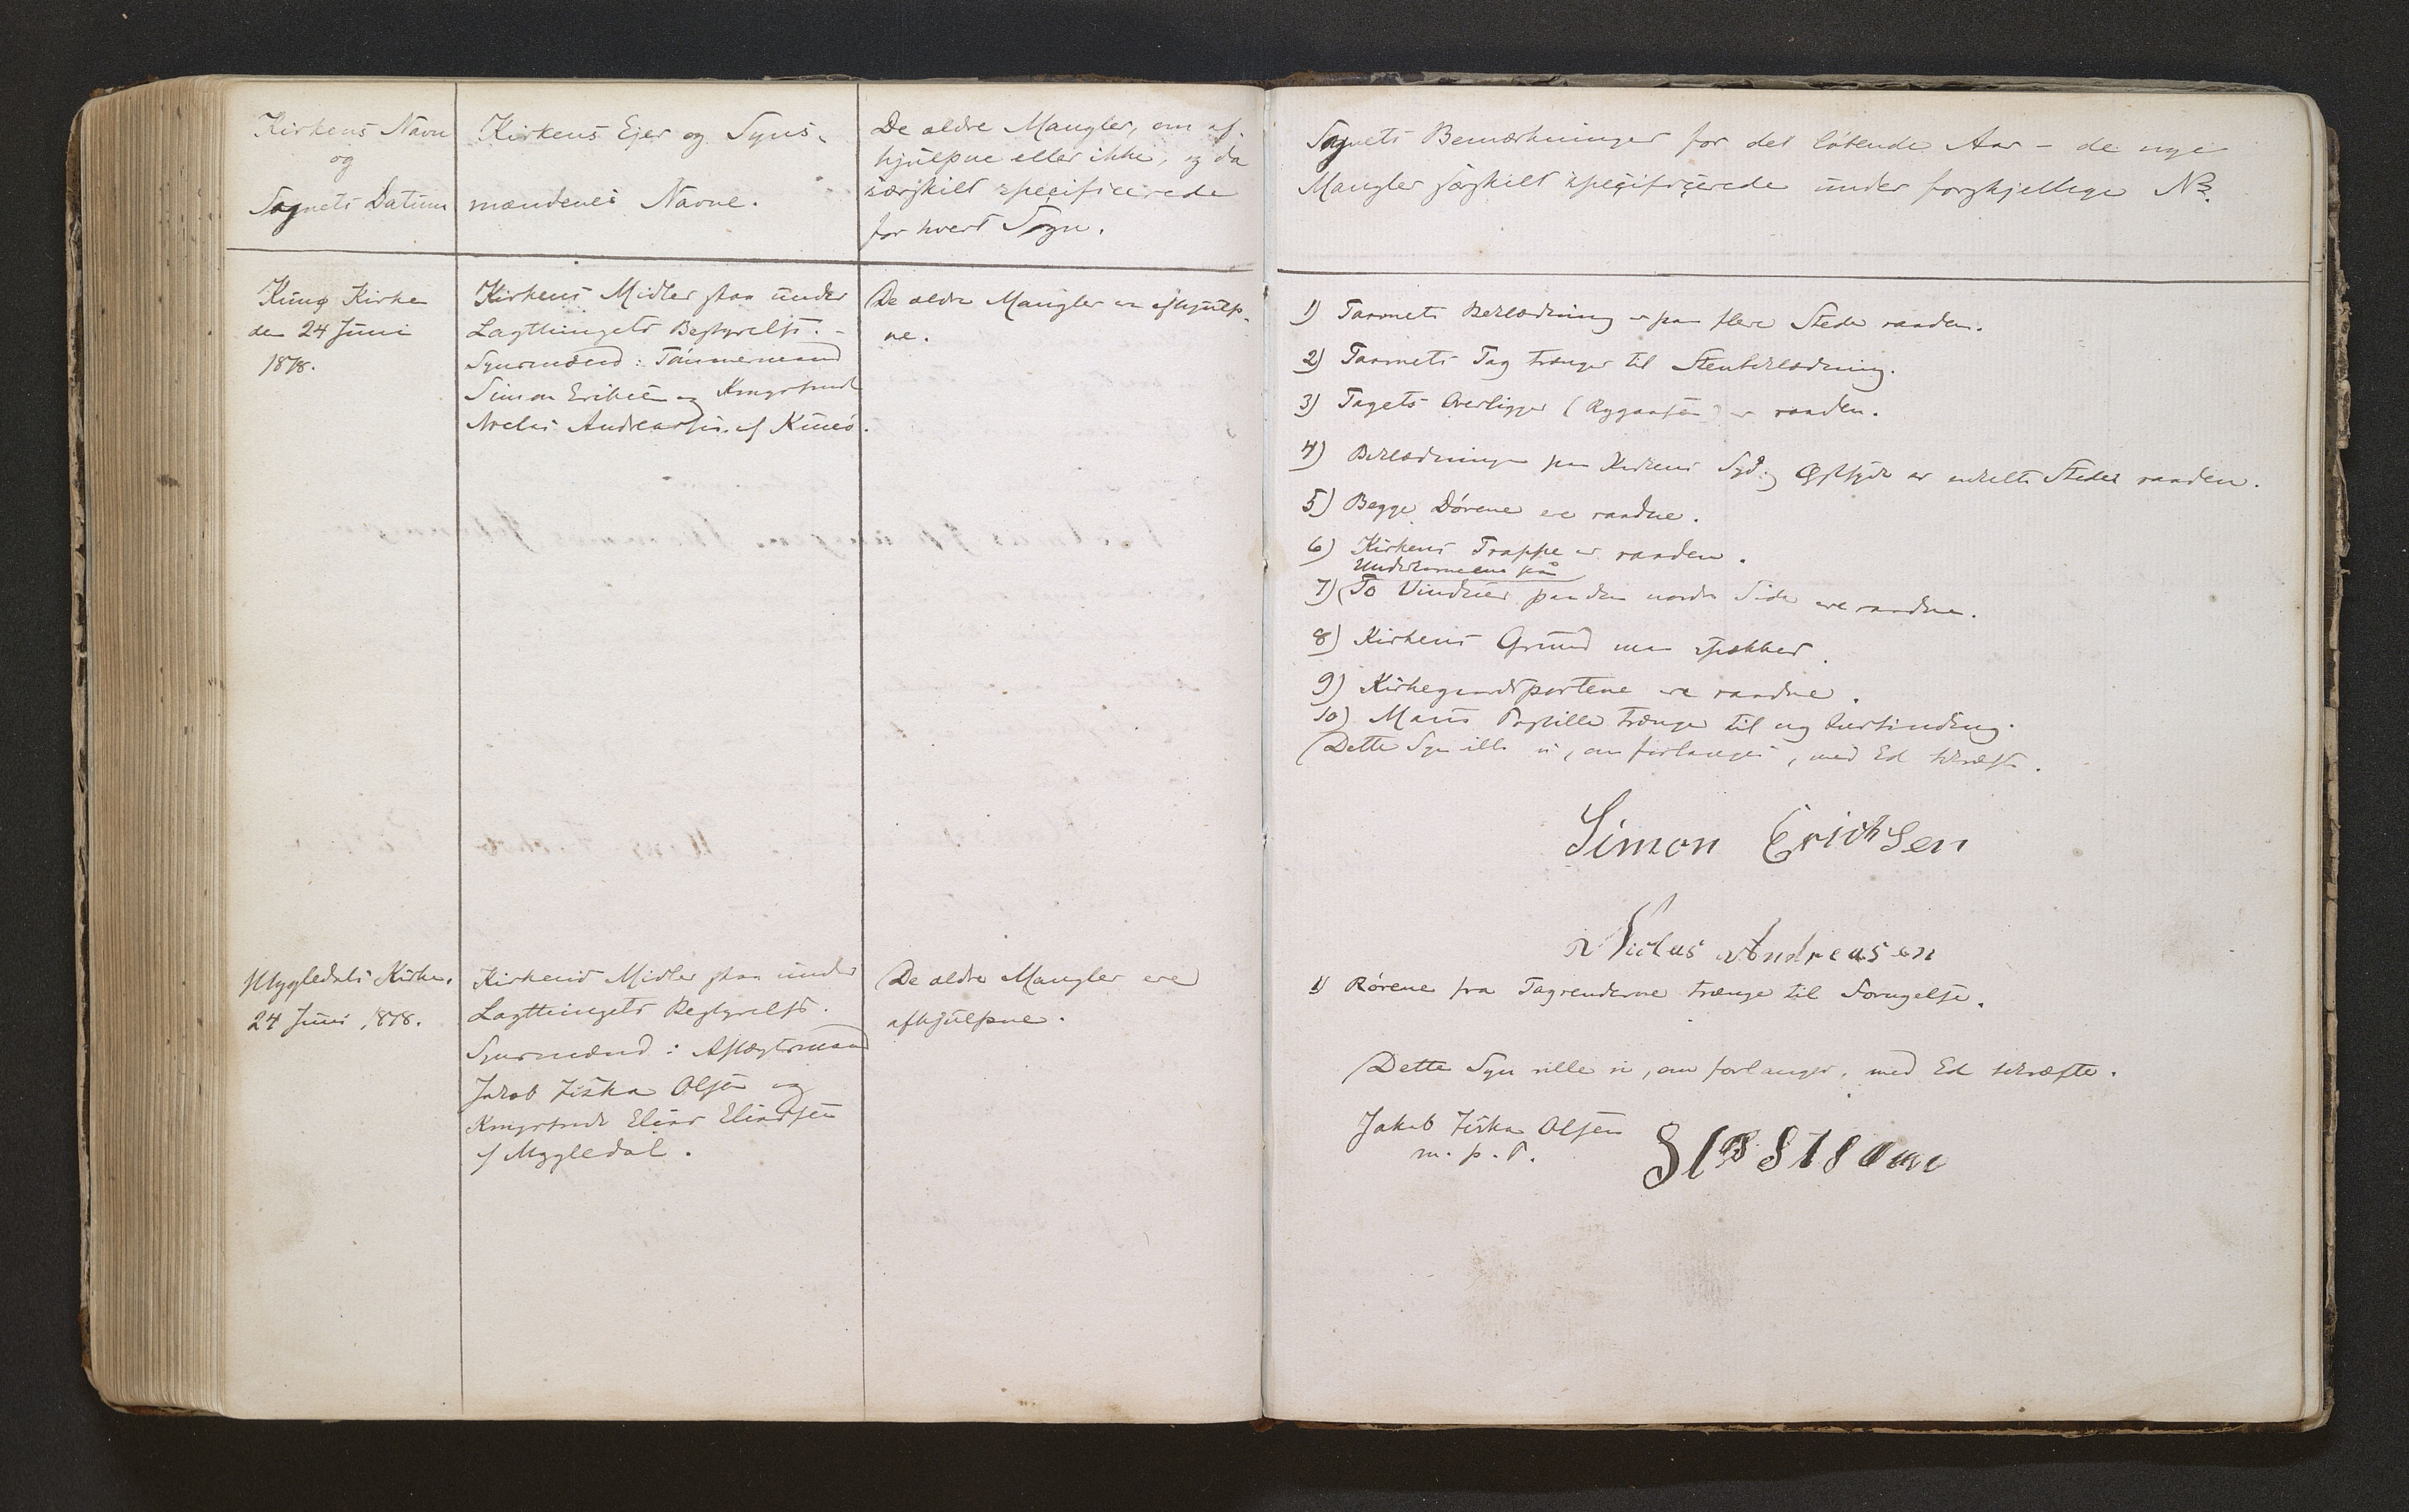 Kirkens Navn
og
Sognets Datum
Kirkens Ejer og Syns-
mændenes Navne.
De ældre Mangler, om af-
hjulpne eller ikke, og da
særskilt specificerede
for hvert Sogn.
Sognets Bemærkninger for det løbende Aar – de nye
Mangler særskilt specificerede under forskjellige No.
Kunø Kirke
den 24 Juni
1878.
Kirkens Midler staa under
Lagthingets Bestyrelse. –
Synsmænd: Tømmermand
Simon Eriksen og Kongsbonde
Niclas Andreassen af Kunø.
De ældre Mangler ere afhjulp-
ne.
1) Taarnets Beklædning er paa flere Steder raaden.
2) Taarnets Tag trænger til Stenbeklædning.
3) Tagets Overligger (Rygaasen) er raaden.
4) Beklædningen paa Kirkens Syd og Østside er enkelte Steder raaden.
5) Begge Dørene ere raadne.
6) Kirkens Trappe er raaden.
Underkarmene på
7) To Vinduer paa den nordre Side ere raadne.
8) Kirkens Grund maa spækkes.
9) Kirkegaardsportene ere raadne.
10) trænger til ny Indbinding.
Dette Syn ville vi, om forlanges, med Ed bekræfte.
Simon Erichsen
Niclas Andreasen
Myggledals Kirke.
24 Juni 1878.
Kirkens Midler staa under
Lagthingets Bestyrelse.
Synsmænd: Aftægtsmand
Jakob Ziska Olsen og
Kongsbonde Elias Eliassen
af Myggledal.
De ældre Mangler ere
afhjulpne.
1) Rørene fra Tagrenderne trænge til Fornyelse.
Dette Syn ville vi, om forlanges, med Ed bekræfte.
Jakob Ziska Olsen
m. p. P.